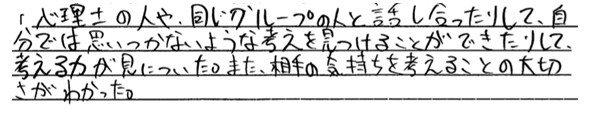 「心理士の人や、同じグループの人と話し合ったりして、自
分では思いつかないような考えを見つけることができたりして、
考える力が見についた。また、相手の気持ちを考えることの大切
さがわかった。